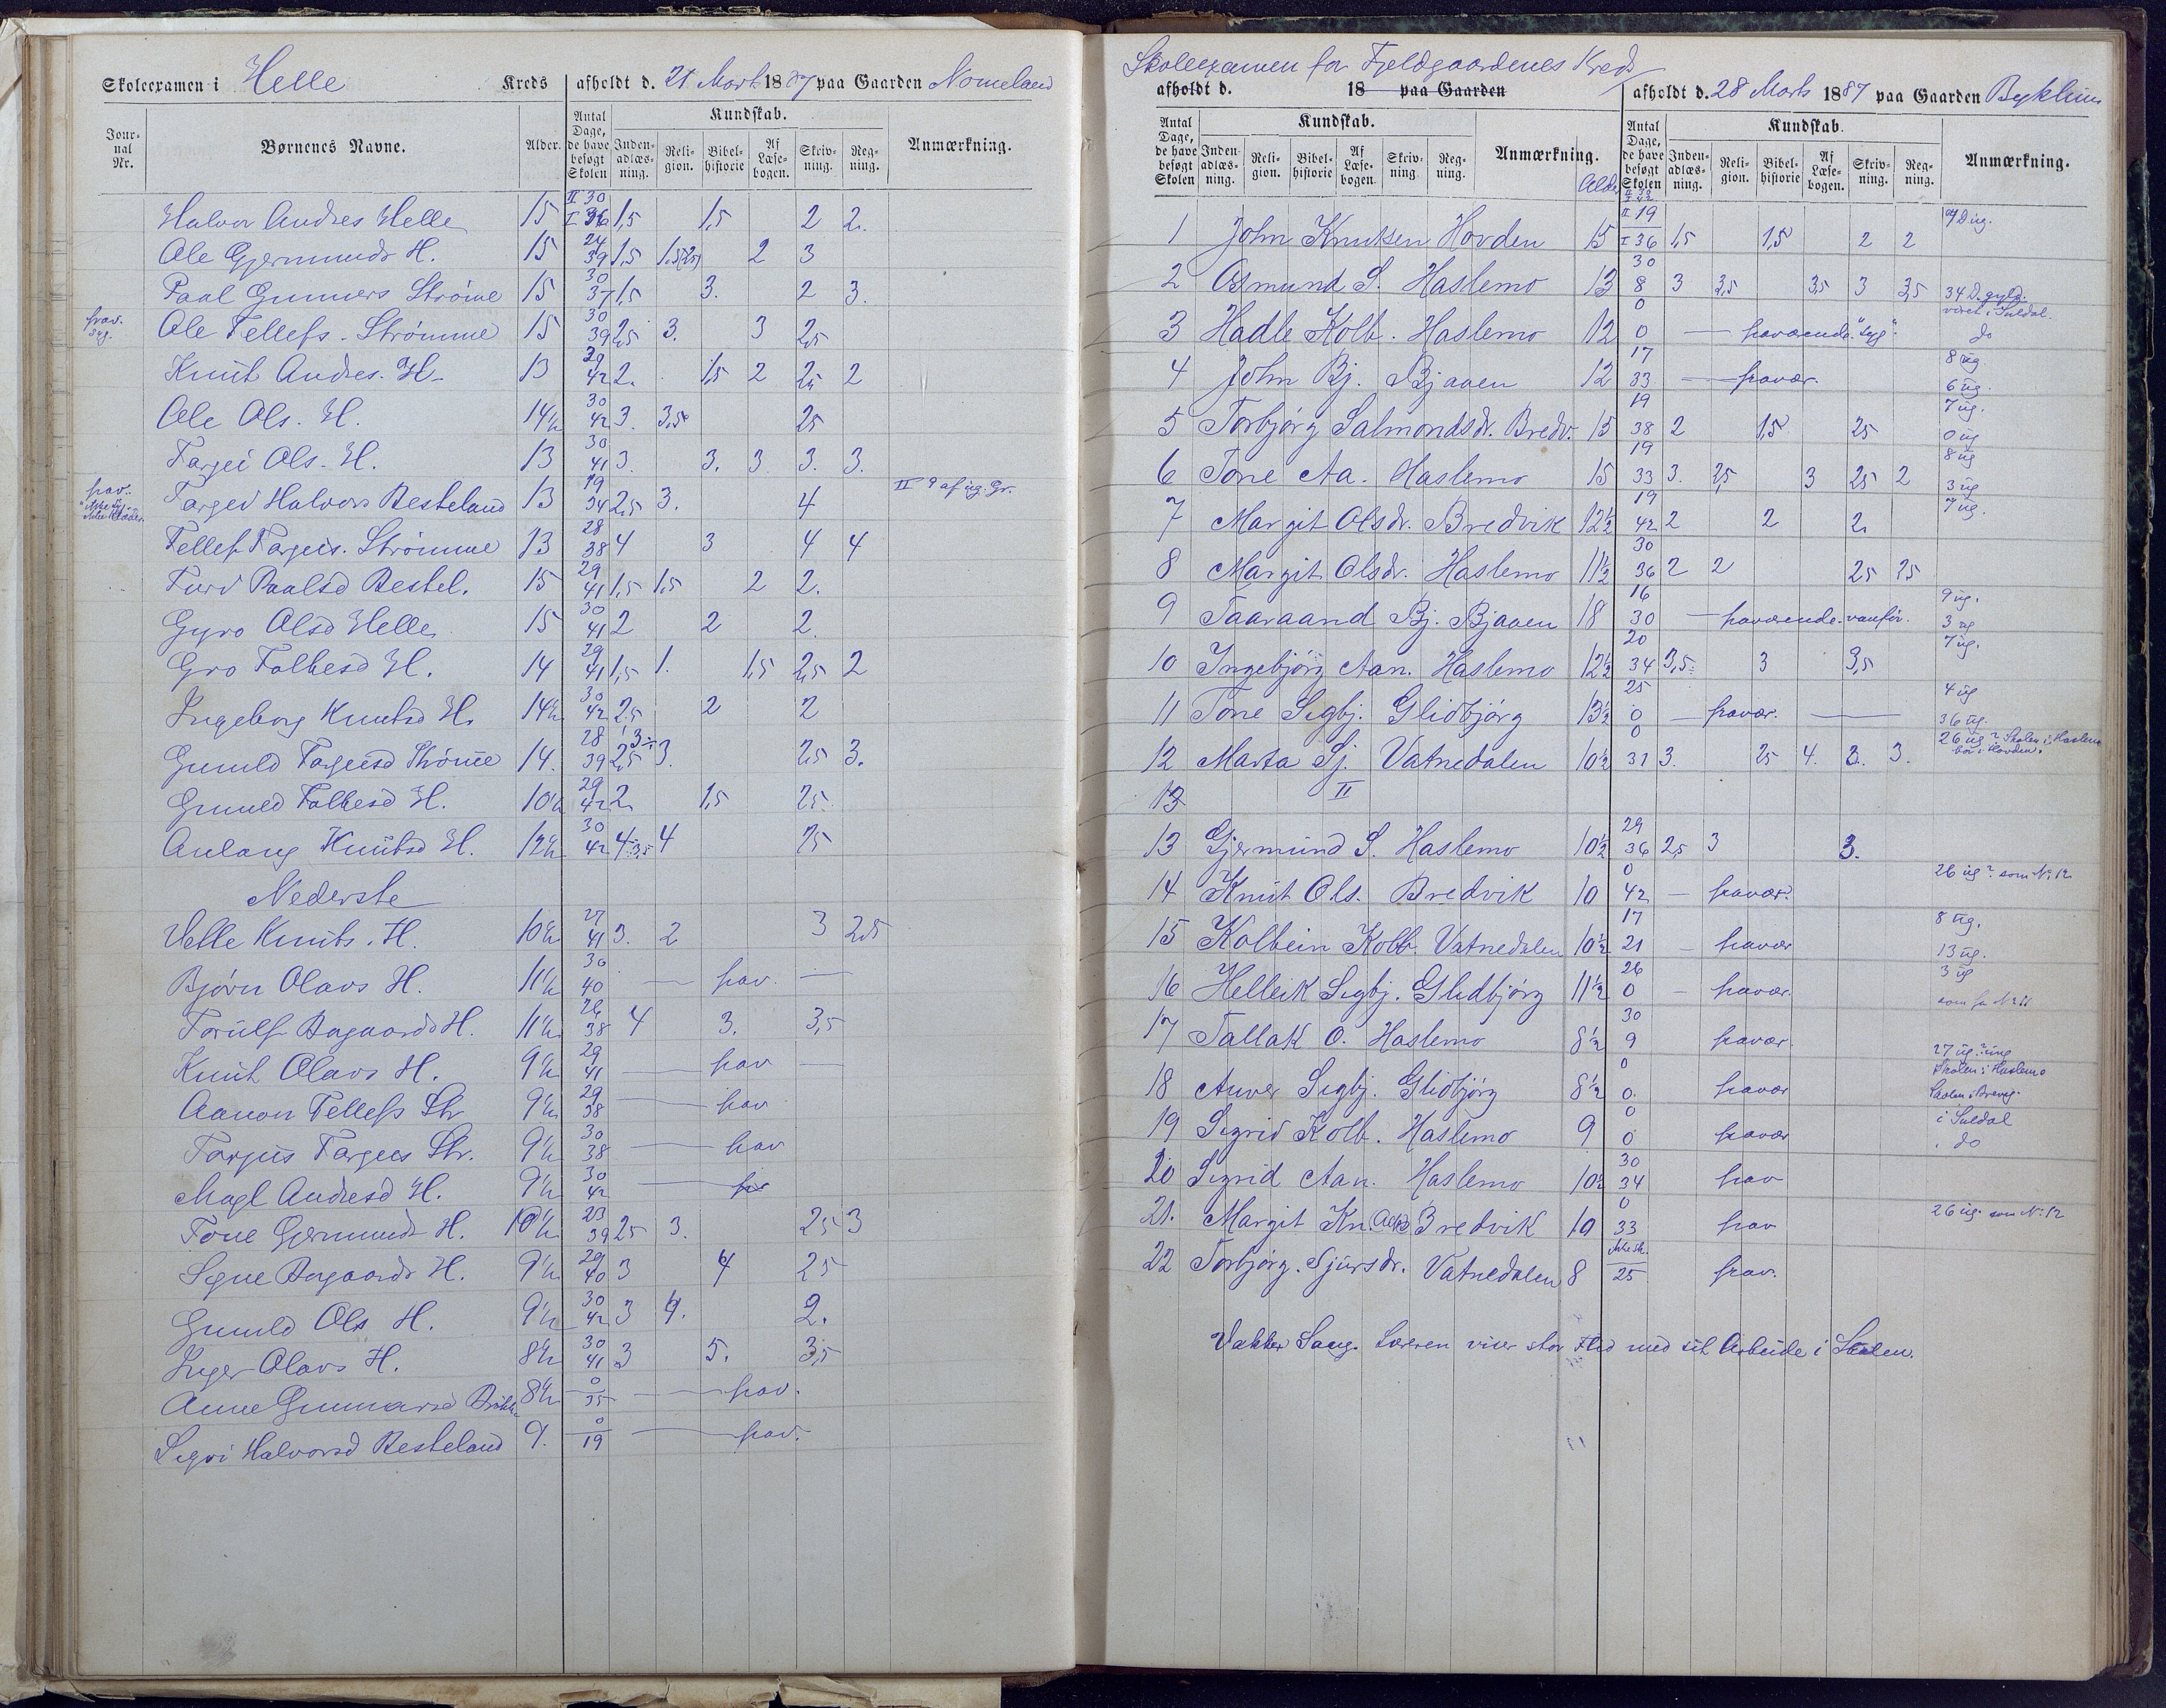 Skoleexamen i Helle Kreds afholdt d. 21 Marts 1887 paa Gaarden Nomeland
Jour-nal Nr. Børnenes Navne. Alder. Antal Dage, de have besøgt Skolen Kundskab. Inden-adlæs-ning. Reli-gion. Bibel-historie Af Læse-bogen. Skriv-ning. Reg-ning. Anmærkning.
Halvor Andres Helle 15 II 30 I 36 1,5 1,5 2 2.
Ole Gjermunds H. 15 24 39 1,5 1.5(2,5) 2 3
Paal Gunners Strömme 15 30 37 1,5 3. 2 3.
frav. syg. Ole Tellefs. Strømme 15 30 39 2,5 3. 3 2,5
Knut Andres. H. 13 29 42 2. 1,5 2 2,5 2
Ole Ols. H. 14½ 30 42 3. 3,5 25
Targei Ols. H. 13 30 41 3. 3. 3 3. 3.
frav. Targei Halvors Besteland 13 19 34 2,5 3. 4 II 9 af ug. Gr.
Tellef Targeis. Strømme 13 28 38 4 3 4 4
Turi Paalsd Bestel. 15 29 41 1,5 1,5 2 2.
Gyro Olsd Helle 15 30 41 2 2 2.
Gro Folkesd H. 14 29 41 1,5 1. 1,5 2,5 2
Ingeborg Knutsd H. 14½ 30 42 2.5 2 2
Gunild Targeisd Strömme 14. 28 39 2,5 3. 2,5 3.
Gunild Folkesd H. 10½ 29 42 2. 1,5 25
Aulaug Knutsd H. 12½ 30 42 4 3,5 4 25
Nederste
Helle Knuts. H. 10½ 27 41 3. 2 3 2,5
Bjørn Olavs H. 11½ 30 40 — frav. —
Torulf Aagaards H. 11½ 26 38 4 3. 3,5
Knut Olavs H. 9½ 29 41 — frav —
Aanon Tellefs Str 9½ 29 38 — frav
Targeis Targeis Str. 9½ 30 38 — frav
Magl Andresd H. 9½ 30 42 —
Tone Gjermunds H. 10½ 23 39 25 3. 25 3
Signe Aagaards H. 9½ 29 40 3 4 25
Gunild Ols H. 9½ 30 42 3 4. 2.
Inger Olavs H. 8½ 30 41 3 5. 3,5
Anne Gunnarsd 8½ 0 35 — frav.
Sigri Halvorsd Besteland 9. 0 19 — frav.
Skoleexamen for Fjeldgaardenes Kreds
afholdt d. 18 paa Gaarden afholdt d. 28 Marts 1887 paa Gaarden Byklum
Antal Dage, de have besøgt Skolen Kundskab. Inden-adlæs-ning. Reli-gion. Bibel-historie Af Læse-bogen. Skriv-ning Reg-ning. Anmærkning. Alder Antal Dage, de have besøgt Skolen Kundskab. Inden-adlæs-ning. Reli-gion. Bibel-historie Af Læse-bogen. Skriv-ning. Reg-ning. Anmærkning.
1 John Knutsen Hovden 15 II 19 I 36 1,5 1,5 2 2
2 Osmund S. Haslemo 13 30 8 3 3,5 3,5 3 3,5 34 D. gyld. været i Suldal.
3 Hadle Kolb. Haslemo 12 0 0 — fraværende "syg". do
4 John Bj. Bjaaen 12 17 33 — fravær. 8 ug 6 ug.
5 Torbjørg Salmondsdr. Bredv. 15 19 38 2 1,5 25 7 ug. 0 ug
6 Tone Aa. Haslemo 15 19 33 3. 2,5 3 25 2 8 ug 3 ug
7 Margit Olsdr. Bredvik 12½ 19 42 2 2 2. 7 ug.
8 Margit Olsdr. Haslemo 11½ 30 36 2 2 25 25
9 Taaraand Bj. Bjaaen 18 16 30 — fraværende vanför. 9 ug. 3 ug
10 Ingebjörg Aan. Haslemo 12½ 20 34 3,5 3 3,5 7 ug.
11 Tone Sigbj. Glidbjörg 13½ 25 0 — fravær. — 4 ug 36 ug.
12 Marta Sj. Vatnedalen 10½ 0 31 3. 25 4. 3. 3. 26 ug? Skolen i Haslemo bor i Hovden.
13 II
13 Gjermund S. Haslemo 10½ 29 36 2,5 3 3.
14 Knut Ols. Bredvik 10 0 42 — fravær. 26 ug? som Nr. 12
15 Kolbein Kolb. Vatnedalen 10½ 17 21 — fravær 8 ug. 13 ug.
16 Helleik Sigbj. Glidbjörg 11½ 26 0 — fravær. 3 ug som for Nr. 11
17 Tallak O. Haslemo 8½ 30 9 fravær.
18 Anver Sigbj. Glidbjörg 8½ 0 0. fravær 27 ug. Skolen i Haslemo
19 Sigrid Kolb. Haslemo 9 0 0 fravær i Suldal do
20 Sigrid Aan. Haslemo 10½ 30 34 frav
21. Margit Kn. Bredvik 10 0 33 frav 26 ug. som Nr. 12
22 Torbjörg. Sjursdr. Vatnedalen 8 25 frav.
Vakker Sang. Læreren viser stor Flid med sit Arbeide i Skolen.